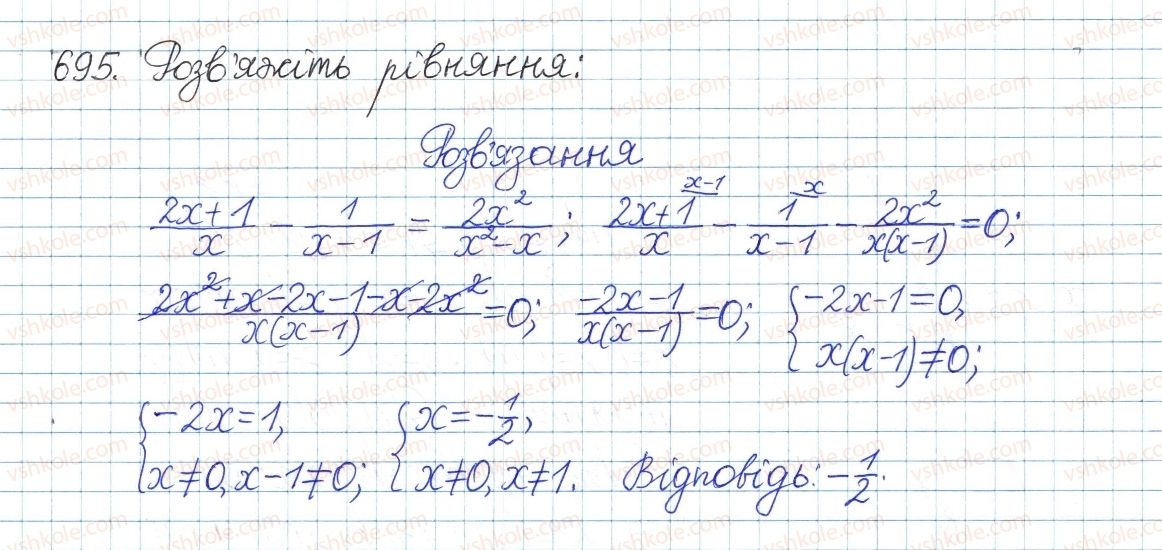 695. Розв'яжіть рівняння:
Розв'язання
(2x+1)/x − 1/(x−1) = 2x²/(x²−x); (2x+1)/x ^(x−1) − 1/(x−1) ^x − 2x²/(x(x−1)) = 0;
(2x²+x−2x−1−x−2x²)/(x(x−1)) = 0; (−2x−1)/(x(x−1)) = 0; { −2x−1=0, x(x−1)≠0;
{ −2x=1, x≠0, x−1≠0; { x=−1/2, x≠0, x≠1. Відповідь: −1/2.
vshkole.com